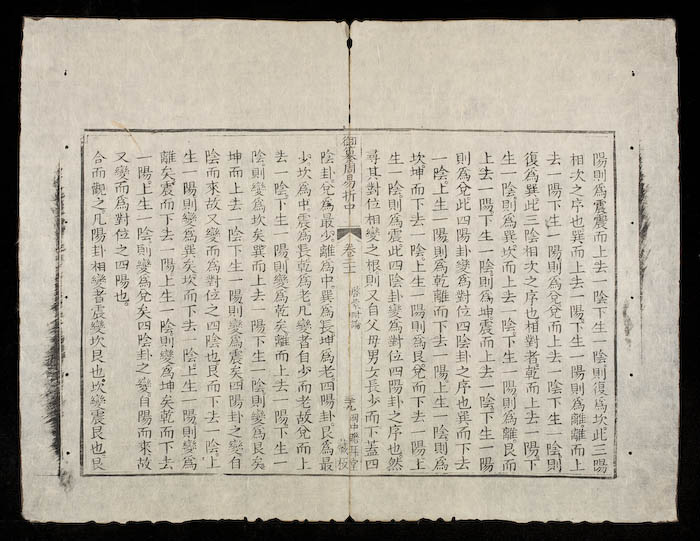 陽則爲震震而上去一陰下生一陰則復爲坎此三陽
相次之序也巽而上去一陽下生一陽則爲離離而上
去一陽下生一陽則爲兌兌而上去一陰下生一陰則
復爲巽此三陰相次之序也相對者乾而上去一陽下
生一陰則爲巽坎而上去一陰下生一陽則爲離艮而
上去一陽下生一陰則爲坤震而上去一陰下生一陽
則爲兌此四陽卦變爲對位四陰卦之序也巽而下去
一陰上生一陽則爲乾離而下去一陽上生一陰則爲
坎坤而下去一陰上生一陽則爲艮兌而下去一陽上
生一陰則爲震此四陰卦變爲對位四陽卦之序也然
尋其對位相變之根則又自父母男女長少而下蓋四
御纂周易折中
卷二十一
啓蒙附論
陰卦兌爲最少離爲中巽爲長坤爲老四陽卦艮爲最
少坎爲中震爲長乾爲老凡變者自少而老故兌而上
去一陰下生一陽則變爲乾矣離而上去一陽下生一
陰則變爲坎矣巽而上去一陽下生一陰則變爲艮矣
坤而上去一陰下生一陽則變爲震矣四陽卦之變自
陰而來故又變而爲對位之四陰也艮而下去一陰上
生一陽則變爲巽矣坎而下去一陰上生一陽則變爲
離矣震而下去一陽上生一陰則變爲坤矣乾而下去
一陽上生一陰則變爲兌矣四陰卦之變自陽而來故
又變而爲對位之四陽也
合而觀之凡陽卦相變者震變坎艮也坎變震艮也艮